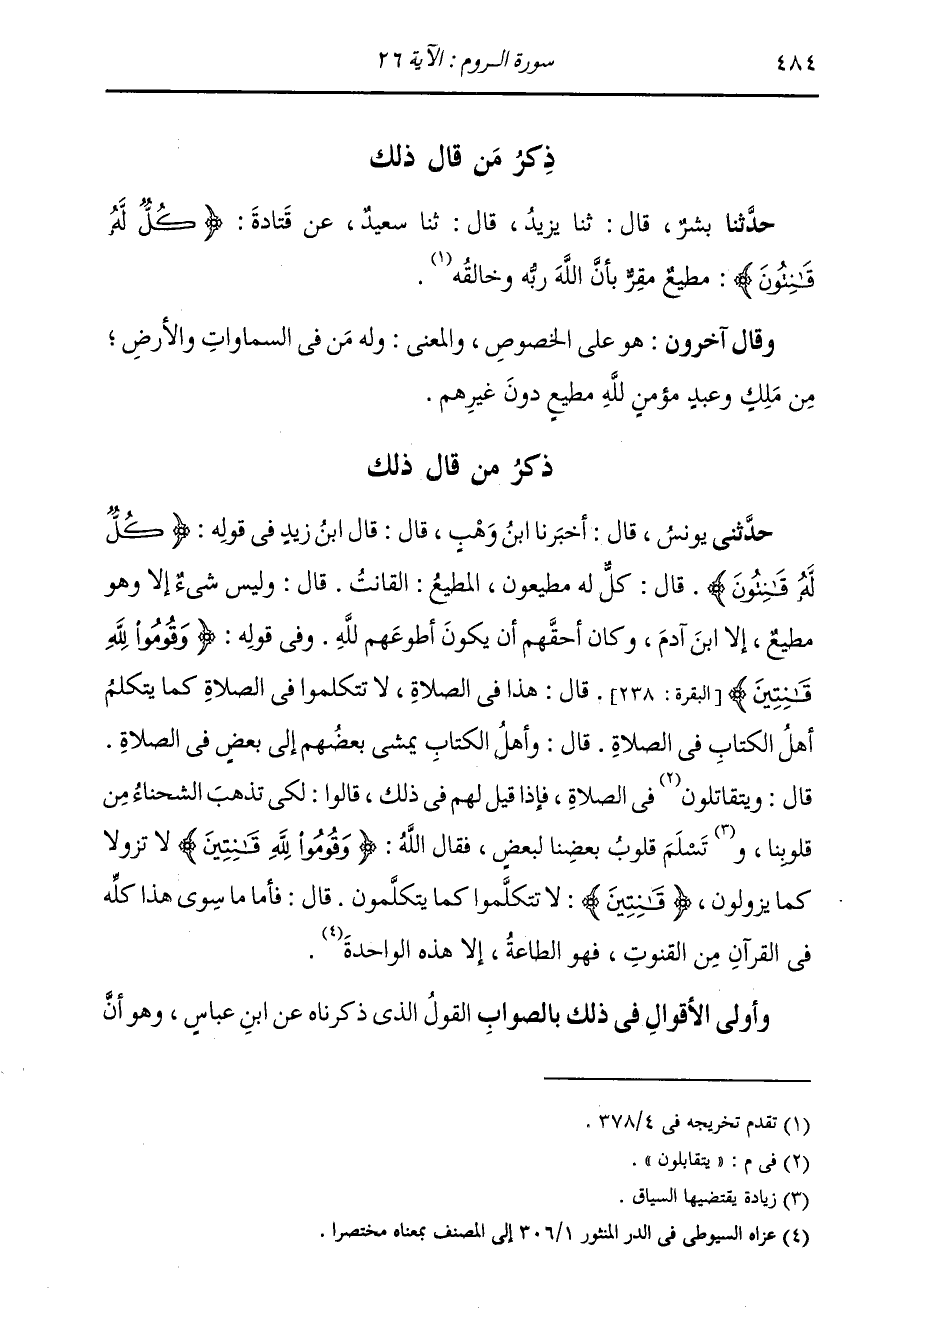 ٤٨٤
سورة الروم : الآية ٢٦
ذِكرُ مَن قال ذلك
حدَّثنا بشرٌ ، قال : ثنا يزيدُ ، قال : ثنا سعيدٌ ، عن قَتادةَ : ﴿ كُلٌّ لَّهُ
قَٰنِتُونَ ﴾ : مطيعٌ مقِرٌّ بأنَّ اللَّهَ ربُّه وخالقُه(١) .
وقال آخرون : هو على الخصوصِ ، والمعنى : وله مَن فى السماواتِ والأرضِ ؛
مِن مَلِكٍ وعبدٍ مؤمنٍ للَّهِ مطيعٍ دونَ غيرِهم .
ذكرُ من قال ذلك
حدَّثنى يونسُ ، قال : أخبَرنا ابنُ وَهْبٍ ، قال : قال ابنُ زيدٍ فى قولِه : ﴿ كُلٌّ
لَّهُ قَٰنِتُونَ ﴾ . قال : كلٌّ له مطيعون ، المطيعُ : القانتُ . قال : وليس شىءٌ إلا وهو
مطيعٌ ، إلا ابنَ آدمَ ، وكان أحقَّهم أن يكونَ أطوعَهم للَّهِ . وفى قولِه : ﴿ وَقُومُوا۟ لِلَّهِ
قَٰنِتِينَ ﴾ [البقرة : ٢٣٨] . قال : هذا فى الصلاةِ ، لا تتكلموا فى الصلاةِ كما يتكلمُ
أهلُ الكتابِ فى الصلاةِ . قال : وأهلُ الكتابِ يمشى بعضُهم إلى بعضٍ فى الصلاةِ .
قال : ويتقاتلون(٢) فى الصلاةِ ، فإذا قيل لهم فى ذلك ، قالوا : لكى تذهبَ الشحناءُ مِن
قلوبِنا ، و(٣) تَسْلَمَ قلوبُ بعضِنا لبعضٍ ، فقال اللَّهُ : ﴿ وَقُومُوا۟ لِلَّهِ قَٰنِتِينَ ﴾ لا تزولا
كما يزولون ، ﴿ قَٰنِتِينَ ﴾ : لا تتكلَّموا كما يتكلَّمون . قال : فأما ما سِوى هذا كلِّه
فى القرآنِ مِن القنوتِ ، فهو الطاعةُ ، إلا هذه الواحدةَ(٤) .
وأولى الأقوالِ فى ذلك بالصوابِ القولُ الذى ذكرناه عن ابنِ عباسٍ ، وهو أنَّ
(١) تقدم تخريجه فى ٣٧٨/٤ .
(٢) فى م : « يتقابلون » .
(٣) زيادة يقتضيها السياق .
(٤) عزاه السيوطى فى الدر المنثور ٣٠٦/١ إلى المصنف بمعناه مختصرا .